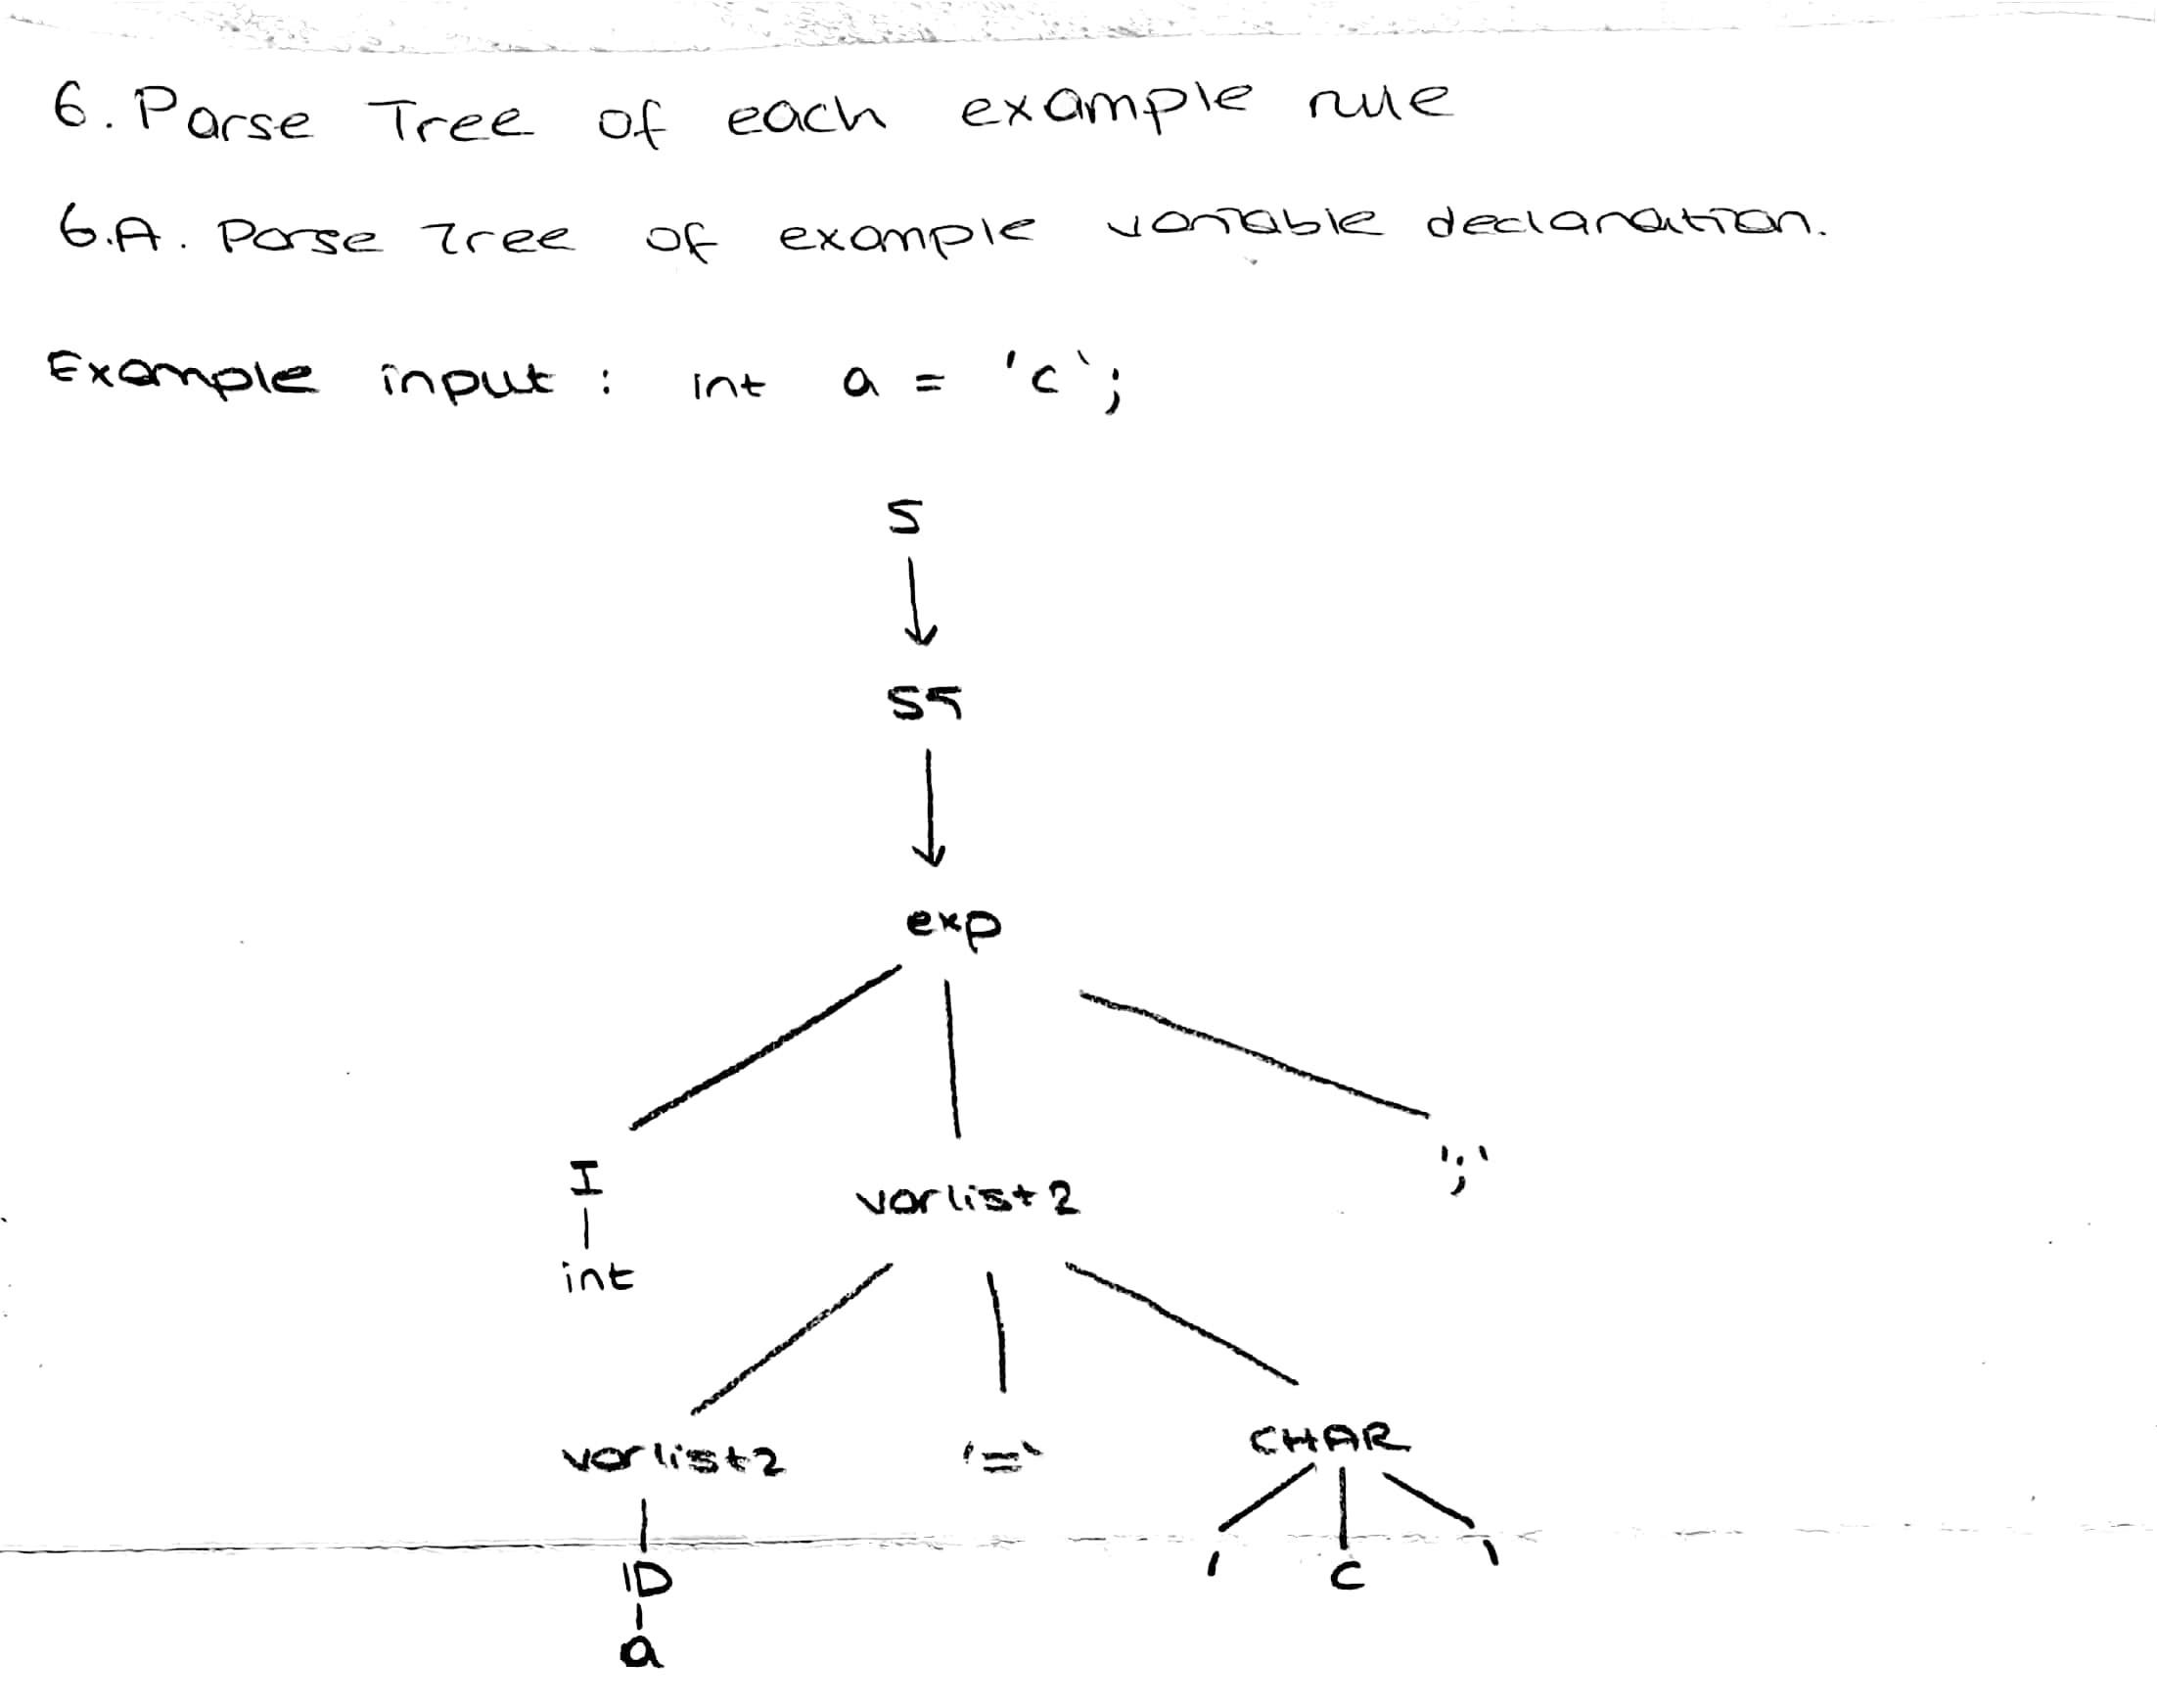 6. Parse Tree of each example rule
6.A. Parse Tree of example variable declaration.
Example input : int a = 'c';
S
SS
exp
I varlist2 ';'
int
varlist2 '=' CHAR
ID ' C '
a